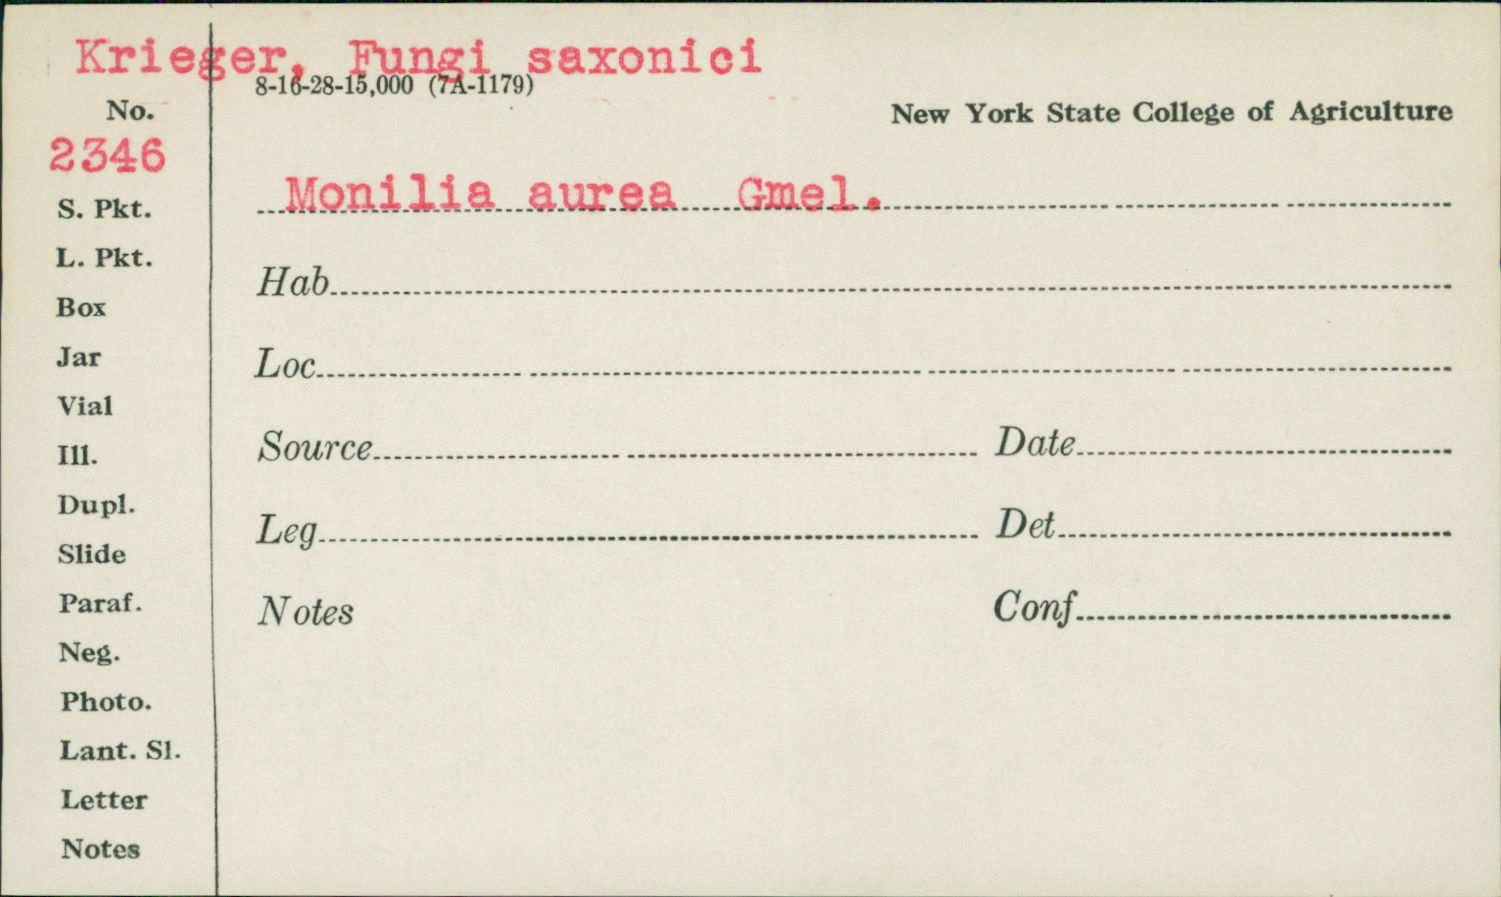 Krieger, Fungi saxonici
8-16-28-15,000 (7A-1179)
No.
New York State College of Agriculture
2346
Monilia aurea Gmel.
S. Pkt.
L. Pkt.
Hab
Box
Jar
Loc
Vial
Ill.
Source Date
Dupl.
Leg Det
Slide
Paraf.
Notes Conf
Neg.
Photo.
Lant. Sl.
Letter
Notes